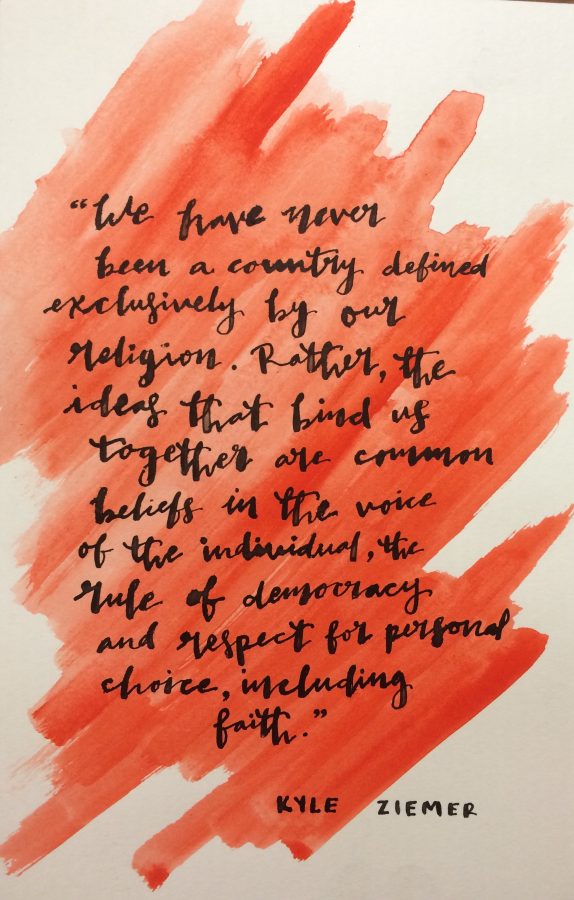 “We have never
been a country defined
exclusively by our
religion. Rather, the
ideas that bind us
together are common
beliefs in the voice
of the individual, the
rule of democracy
and respect for personal
choice, including
faith.”
KYLE ZIEMER